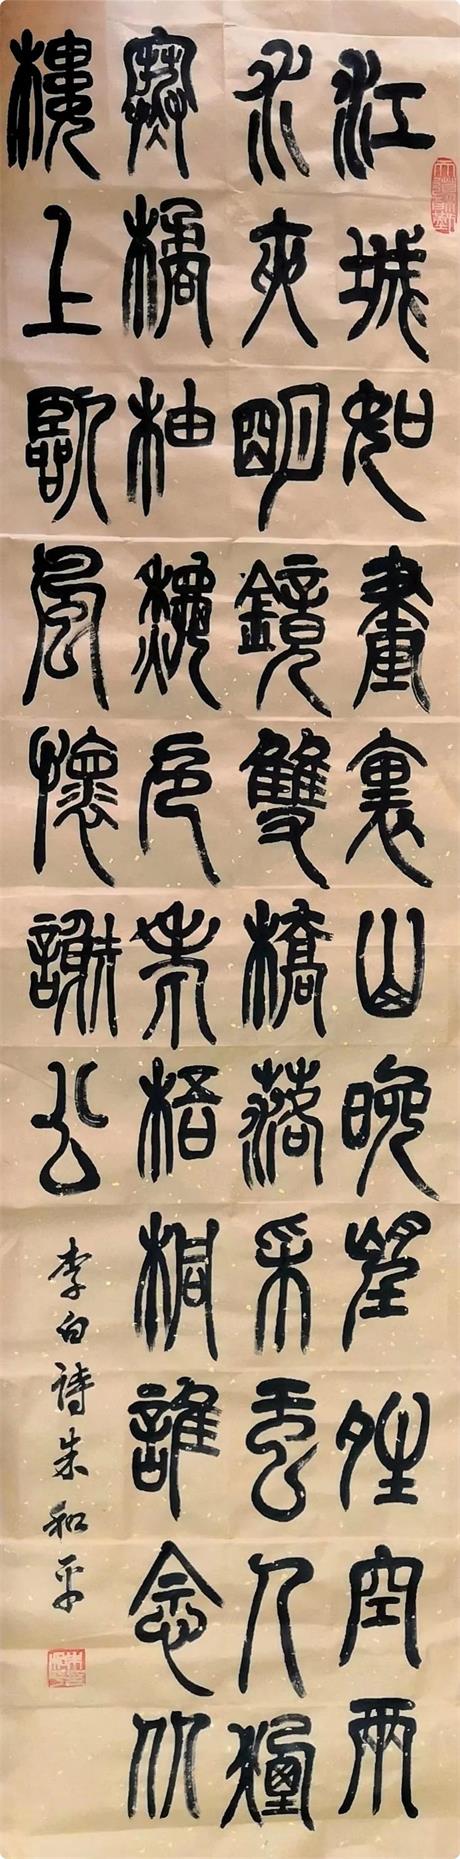 江城如畫裏山晚望晴空兩
水夾明鏡雙橋落采虹人煙
寒橘柚秋色老梧桐誰念北
樓上臨風懷謝公
李白詩朱和平